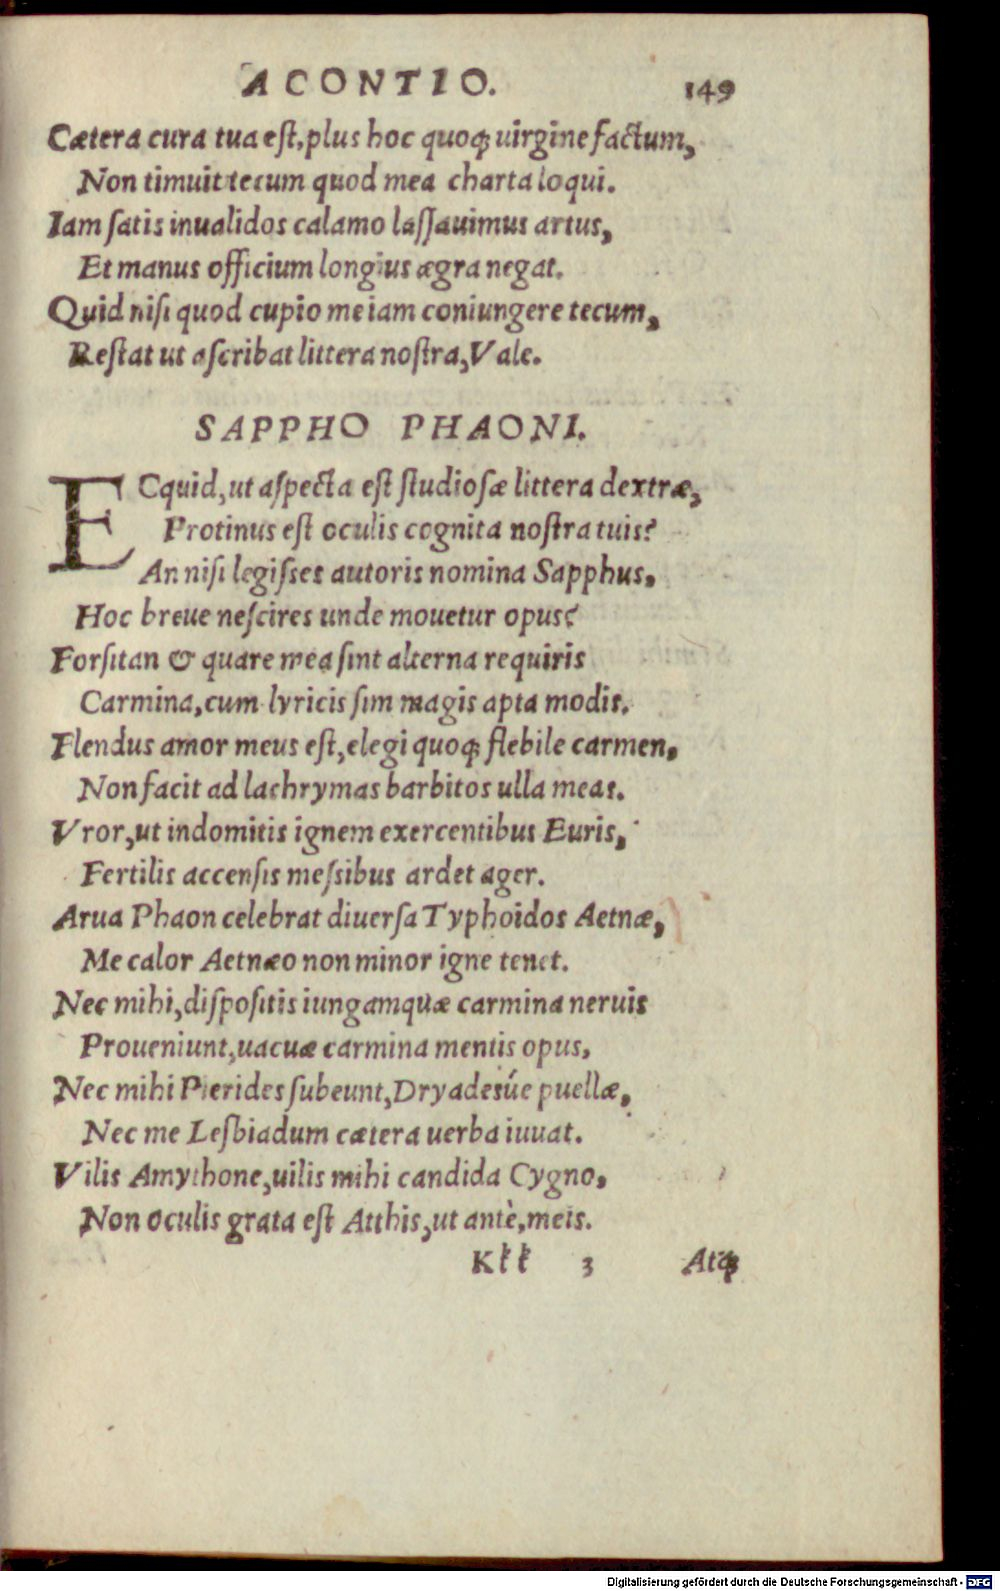 ACONTIO. 149
Cætera cura tua est, plus hoc quoq; uirgine factum,
Non timuit tecum quod mea charta loqui.
Iam satis inualidos calamo lassauimus artus,
Et manus officium longius ægra negat.
Quid nisi quod cupio me iam coniungere tecum,
Restat ut ascribat littera nostra, Vale.
SAPPHO PHAONI.
ECquid, ut aspecta est studiosæ littera dextræ,
Protinus est oculis cognita nostra tuis?
An nisi legisses autoris nomina Sapphus,
Hoc breue nescires unde mouetur opus?
Forsitan & quare mea sint alterna requiris
Carmina, cum lyricis sim magis apta modis.
Flendus amor meus est, elegi quoq; flebile carmen,
Non facit ad lachrymas barbitos ulla meas.
Vror, ut indomitis ignem exercentibus Euris,
Fertilis accensis messibus ardet ager.
Arua Phaon celebrat diuersa Typhoidos Aetnæ,
Me calor Aetnæo non minor igne tenet.
Nec mihi, dispositis iungam quæ carmina neruis
Proueniunt, uacuæ carmina mentis opus,
Nec mihi Pierides subeunt, Dryadesúe puellæ,
Nec me Lesbiadum cætera uerba iuuat.
Vilis Amythone, uilis mihi candida Cygno,
Non oculis grata est Atthis, ut antè, meis.
Kkk 3 Atq;
Digitalisierung gefördert durch die Deutsche Forschungsgemeinschaft - DFG